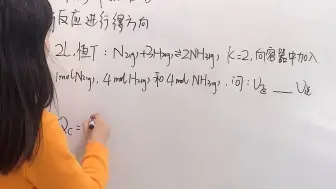 反应进行得方向
2L,恒T: N₂(g)+3H₂(g)⇌2NH₃(g), K=2,向容器中加入
1mol N₂(g), 4mol H₂(g) 和 4mol NH₃(g), 问: U正 __ U逆
Qc=